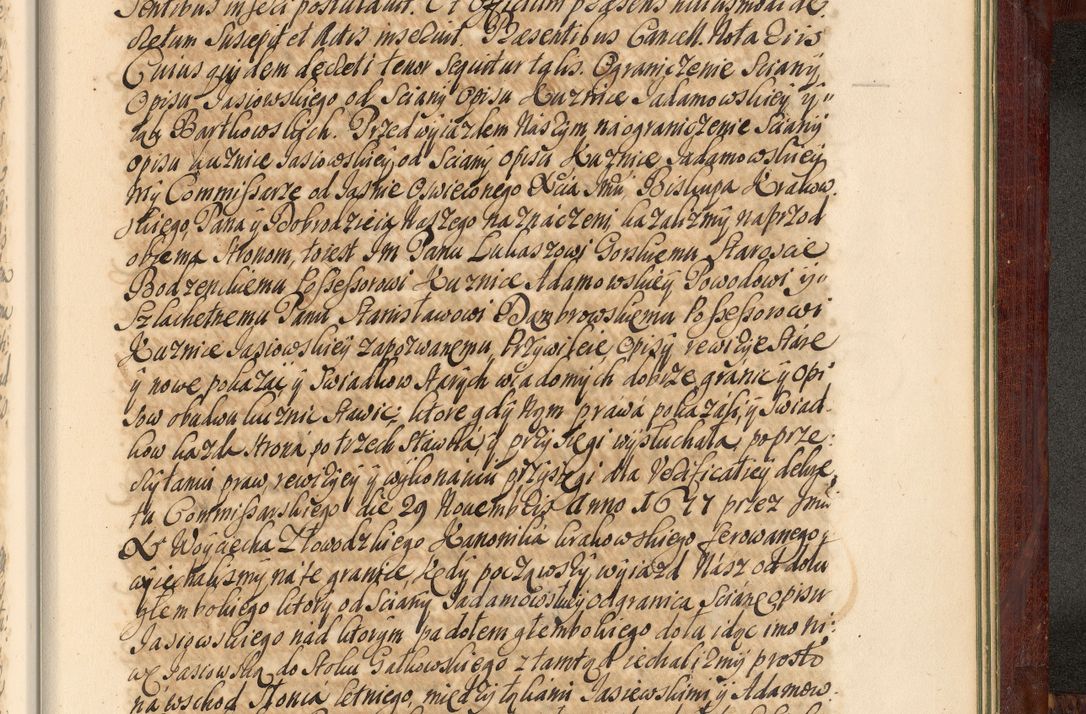 sentibus inseri postulavit. Et Officium praesens huiusmodi de
cretum suscepit et Actis inseruit. Praesentibus Cancell. Nota Eius
Cuius quidem decreti tenor sequitur talis. Ograniczenie Sciany
Opisu Jasiowskiego od Sciany Opisu Kuznice Jadamowskiey y
lub Bartkowskich. Przed wyiazdem Naszym na ograniczenie Sciany
opisu kuznice Jasiowskiey od Sciany opisu Kuznice Jadamowskiey
My Commissarze od Jasnie Oswieconego Xcia Jmu Biskupa Krakow
skiego, Pana y Dobrodzieia Naszego naznaczeni kazalismy naprzod
obiema stronom, to iest Jm Panu Lukaszowi Gorskiemu Staroscie
Bodzenckiemu Possessorowi Kuznice Adamowskiey Powodowi y
Szlachetnemu Panu Stanislawowi Dąmbrowskiemu Possessorowi
Kuznice Jasiowskiey zapozwanemu, Przywileie, opisy rewizye stare
y nowe pokazać y swiadkow starych wiadomych dobrze granic y opi
sow obudwu kuznic stawic, ktore gdy Nom prawa pokazali, y swiad
kow kazda strona po trzech stawila, y przysiegi wysluchala, po prze
czytaniu praw rewizyey y wykonaniu przysiegi dla Verificatiey dekre
tu Commissarskiego die 29 Novembris Anno 1677 przez Jmu
X Woyciecha Zlowodzkiego Kanonika krakowskiego ferowanego
wyiechalismy na te granice, kedy począwszy wyiazd Nasz od dolu
głembokiego ktory od Sciany Jadamowskiey odgranicza Scianę opisu
Jasiowskiego nad ktorym padolem głembokiego dolu idąc imo ni
wę Jasiowską do Stoku Galkowskiego z tamtąd iechalismy prosto
na wschod Slonca letniego, między łąkami Jasiewskimi y Adamow